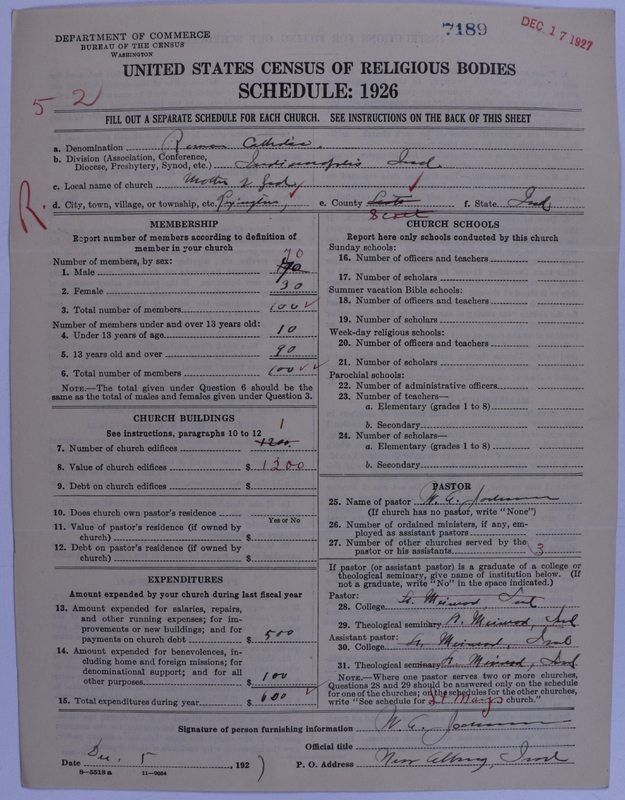 DEPARTMENT OF COMMERCE
BUREAU OF THE CENSUS
WASHINGTON
7189
DEC 17 1927
UNITED STATES CENSUS OF RELIGIOUS BODIES
SCHEDULE: 1926
5 2
FILL OUT A SEPARATE SCHEDULE FOR EACH CHURCH. SEE INSTRUCTIONS ON THE BACK OF THIS SHEET
a. Denomination Roman Catholic.
b. Division (Association, Conference,
Diocese, Presbytery, Synod, etc.) Indianapolis Ind.
c. Local name of church Mother of God
R.
d. City, town, village, or township, etc. Lexington, e. County Scott f. State Ind
Scott
MEMBERSHIP
Report number of members according to definition of
member in your church
Number of members, by sex: 70
1. Male
2. Female 30
3. Total number of members 100
Number of members under and over 13 years old:
4. Under 13 years of age 10
5. 13 years old and over 90
6. Total number of members 100
NOTE.—The total given under Question 6 should be the
same as the total of males and females given under Question 3.
CHURCH BUILDINGS
See instructions, paragraphs 10 to 12 1
7. Number of church edifices 1200.
8. Value of church edifices $ 1200
9. Debt on church edifices $
10. Does church own pastor's residence
Yes or No
11. Value of pastor's residence (if owned by
church) $
12. Debt on pastor's residence (if owned by
church) $
EXPENDITURES
Amount expended by your church during last fiscal year
13. Amount expended for salaries, repairs,
and other running expenses; for im-
provements or new buildings; and for
payments on church debt $ 500
14. Amount expended for benevolences, in-
cluding home and foreign missions; for
denominational support; and for all
other purposes $ 100
15. Total expenditures during year $ 600
CHURCH SCHOOLS
Report here only schools conducted by this church
Sunday schools:
16. Number of officers and teachers
17. Number of scholars
Summer vacation Bible schools:
18. Number of officers and teachers
19. Number of scholars
Week-day religious schools:
20. Number of officers and teachers
21. Number of scholars
Parochial schools:
22. Number of administrative officers
23. Number of teachers—
a. Elementary (grades 1 to 8)
b. Secondary
24. Number of scholars—
a. Elementary (grades 1 to 8)
b. Secondary
PASTOR
25. Name of pastor W. A.
(If church has no pastor, write "None")
26. Number of ordained ministers, if any, em-
ployed as assistant pastors
27. Number of other churches served by the
pastor or his assistants 3
If pastor (or assistant pastor) is a graduate of a college or
theological seminary, give name of institution below. (If
not a graduate, write "No" in the space indicated.)
Pastor:
28. College St. Meinrad, Ind
29. Theological seminary St. Meinrad, Ind
Assistant pastor:
30. College St. Meinrad, Ind
31. Theological seminary St. Meinrad, Ind
NOTE.—Where one pastor serves two or more churches,
Questions 28 and 29 should be answered only on the schedule
for one of the churches; on the schedules for the other churches,
write "See schedule for St Marys church."
Signature of person furnishing information W. A.
Official title
Date Dec. 5, 1927 P. O. Address New Albany, Ind
8-5518a 11-9554